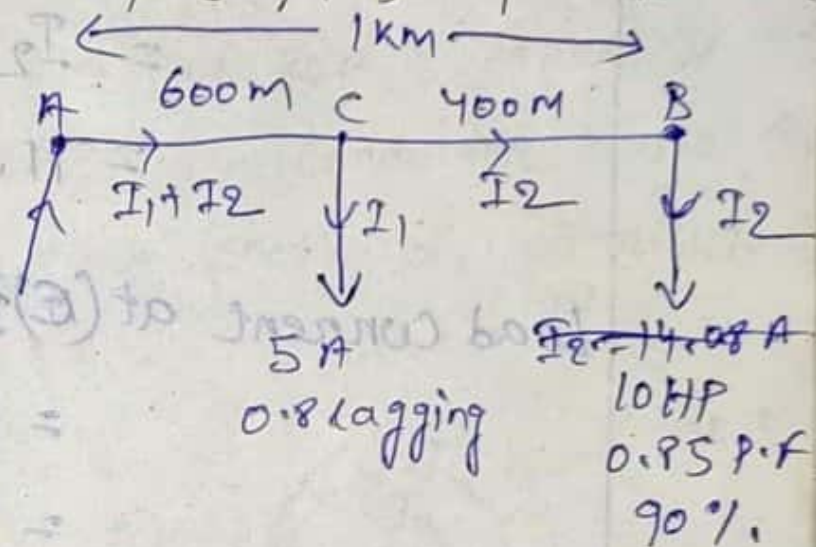 1 Km
600m
400M
A
C
B
I1+I2
I1
I2
I2
5 A
0.8 lagging
I2 = 14.08 A
10 HP
0.85 P.F
90 %.